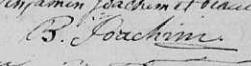 Benjamin Joachim et
B. Joachim